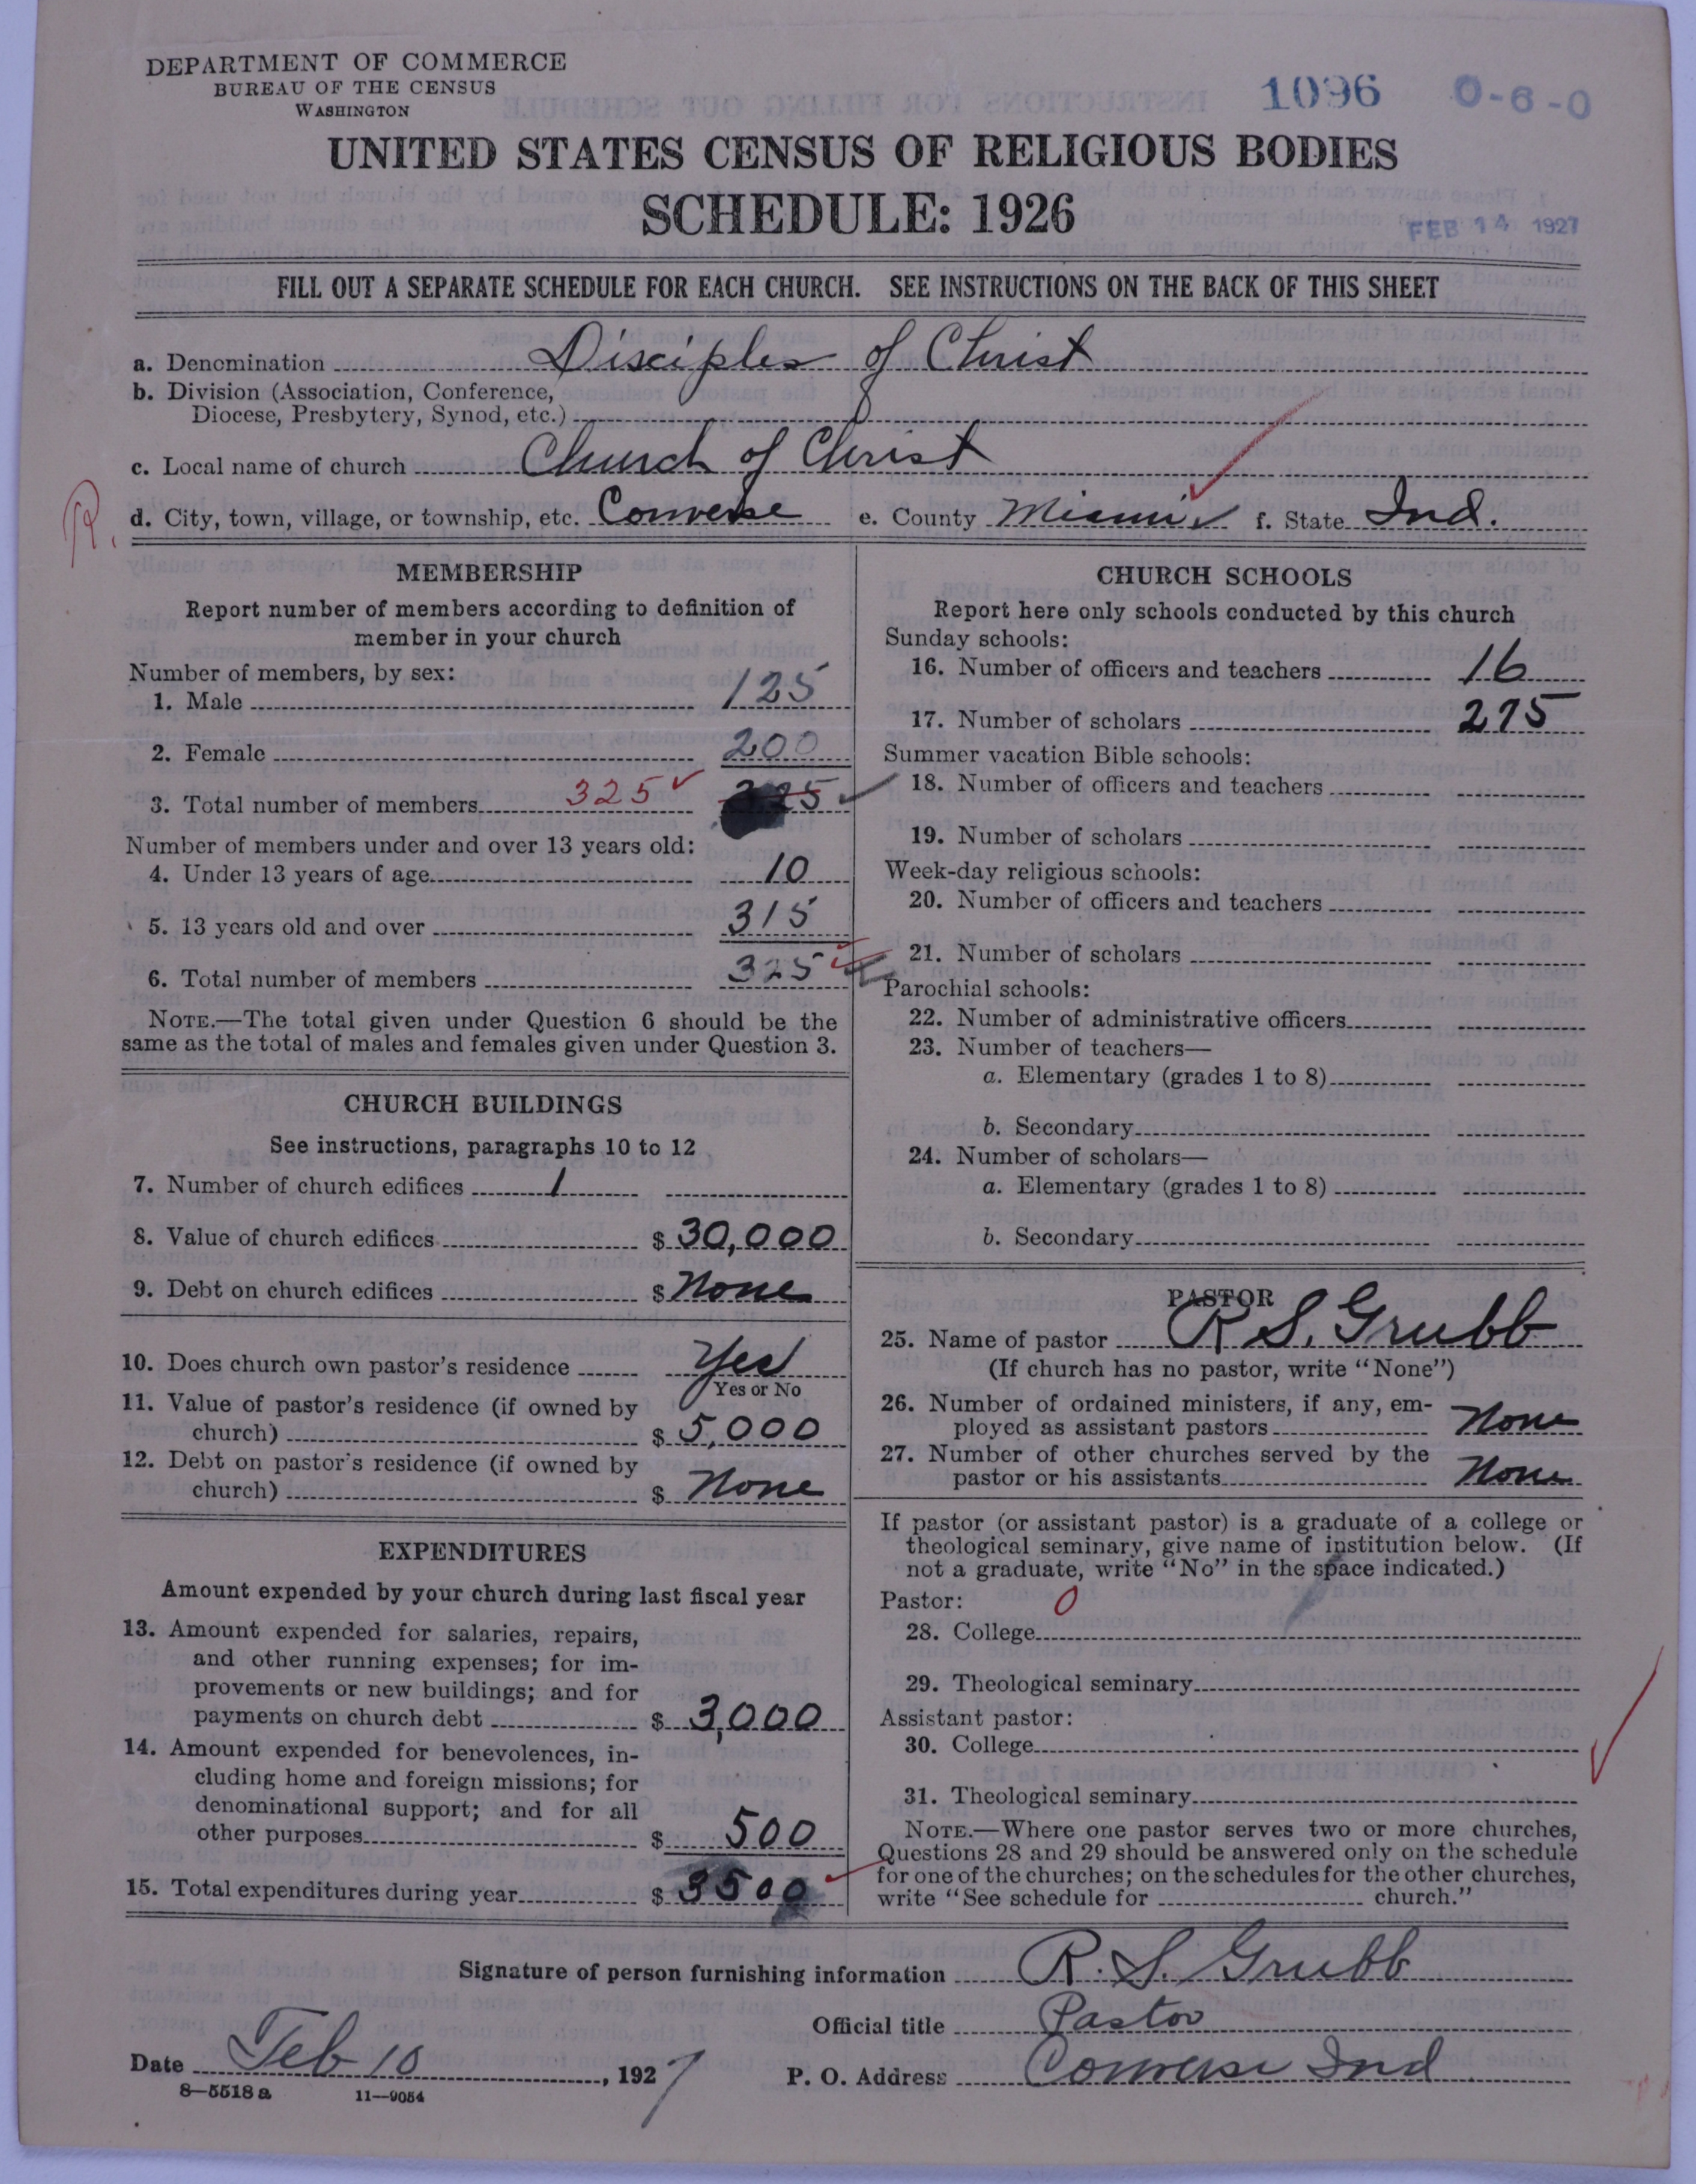 DEPARTMENT OF COMMERCE
BUREAU OF THE CENSUS
WASHINGTON
1096 0-6-0
UNITED STATES CENSUS OF RELIGIOUS BODIES
SCHEDULE: 1926
FEB 14 1927
FILL OUT A SEPARATE SCHEDULE FOR EACH CHURCH. SEE INSTRUCTIONS ON THE BACK OF THIS SHEET
a. Denomination Disciples of Christ
b. Division (Association, Conference,
Diocese, Presbytery, Synod, etc.)
c. Local name of church Church of Christ
R.
d. City, town, village, or township, etc. Converse e. County Miami f. State Ind.
MEMBERSHIP
Report number of members according to definition of
member in your church
Number of members, by sex:
1. Male 125
2. Female 200
3. Total number of members 325 ✓ 325 ✓
Number of members under and over 13 years old:
4. Under 13 years of age 10
5. 13 years old and over 315
6. Total number of members 325 ✓
NOTE.—The total given under Question 6 should be the
same as the total of males and females given under Question 3.
CHURCH BUILDINGS
See instructions, paragraphs 10 to 12
7. Number of church edifices 1
8. Value of church edifices $ 30,000
9. Debt on church edifices $ None
10. Does church own pastor's residence Yes
Yes or No
11. Value of pastor's residence (if owned by
church) $ 5,000
12. Debt on pastor's residence (if owned by
church) $ None
EXPENDITURES
Amount expended by your church during last fiscal year
13. Amount expended for salaries, repairs,
and other running expenses; for im-
provements or new buildings; and for
payments on church debt $ 3,000
14. Amount expended for benevolences, in-
cluding home and foreign missions; for
denominational support; and for all
other purposes $ 500
15. Total expenditures during year $ 3500
CHURCH SCHOOLS
Report here only schools conducted by this church
Sunday schools:
16. Number of officers and teachers 16
17. Number of scholars 275
Summer vacation Bible schools:
18. Number of officers and teachers
19. Number of scholars
Week-day religious schools:
20. Number of officers and teachers
21. Number of scholars
Parochial schools:
22. Number of administrative officers
23. Number of teachers—
a. Elementary (grades 1 to 8)
b. Secondary
24. Number of scholars—
a. Elementary (grades 1 to 8)
b. Secondary
PASTOR
25. Name of pastor R S. Grubb
(If church has no pastor, write "None")
26. Number of ordained ministers, if any, em-
ployed as assistant pastors None
27. Number of other churches served by the
pastor or his assistants None
If pastor (or assistant pastor) is a graduate of a college or
theological seminary, give name of institution below. (If
not a graduate, write "No" in the space indicated.)
Pastor: 0
28. College
29. Theological seminary
Assistant pastor:
30. College
31. Theological seminary
NOTE.—Where one pastor serves two or more churches,
Questions 28 and 29 should be answered only on the schedule
for one of the churches; on the schedules for the other churches,
write "See schedule for church."
Signature of person furnishing information R. S. Grubb
Official title Pastor
Date Feb 10, 1927 P. O. Address Converse Ind
8—5518 a 11—9054